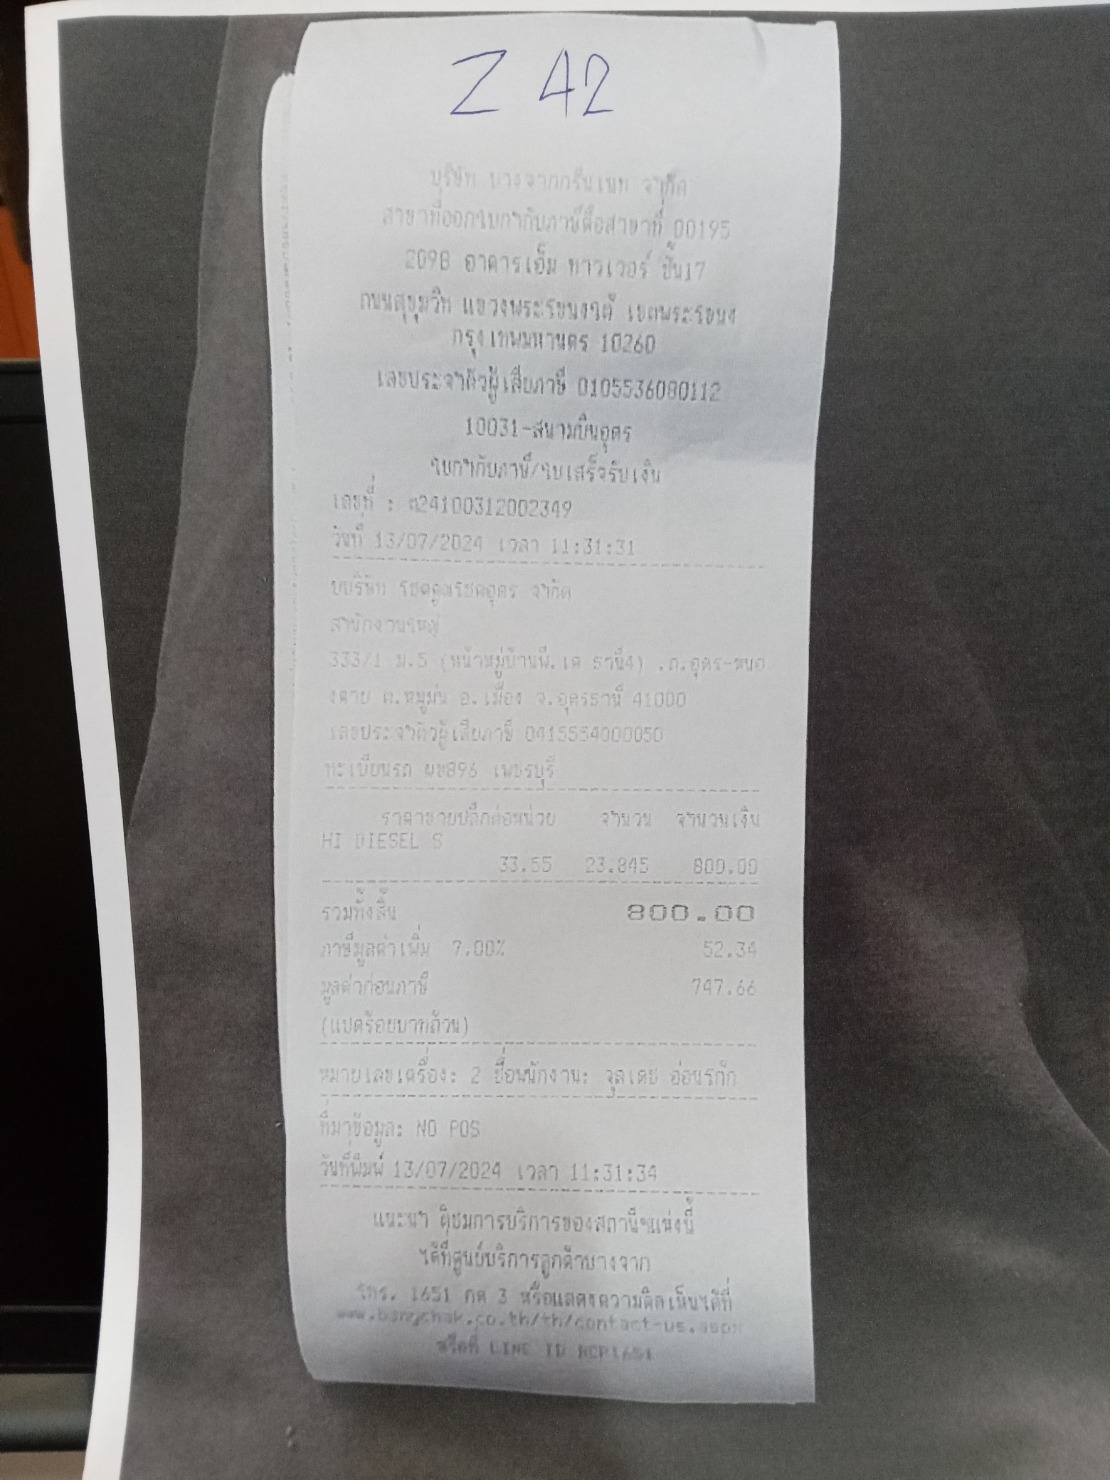 Z 42
บริษัท บางจากกรีนเนท จำกัด
สาขาที่ออกใบกำกับภาษีคือสาขาที่ 00195
2098 อาคารเอ็ม ทาวเวอร์ ชั้น17
ถนนสุขุมวิท แขวงพระโขนงใต้ เขตพระโขนง
กรุงเทพมหานคร 10260
เลขประจำตัวผู้เสียภาษี 0105536080112
10031-สนามบินอุดร
ใบกำกับภาษี/ใบเสร็จรับเงิน
เลขที่ : 24100312002349
วันที่ 13/07/2024 เวลา 11:31:31
บบริษัท จำกัด
สำนักงานใหญ่
333/1 ม.5 (หน้าหมู่บ้านพี.เค ธานี4) .ถ.อุดร-หนอ
งคาย ต.หมูม่น อ.เมือง จ.อุดรธานี 41000
เลขประจำตัวผู้เสียภาษี 0415534000050
ทะเบียนรถ ผข896 เพชรบุรี
ราคาขายปลีกต่อหน่วย จำนวน จำนวนเงิน
HI DIESEL S
33.55 23.845 800.00
รวมทั้งสิ้น 800.00
ภาษีมูลค่าเพิ่ม 7.00% 52.34
มูลค่าก่อนภาษี 747.66
(แปดร้อยบาทถ้วน)
หมายเลขเครื่อง: 2 ชื่อพนักงาน: จุลเดช อ่อนรกัก
ที่มาข้อมูล: NO POS
วันที่พิมพ์ 13/07/2024 เวลา 11:31:34
แนะนำ ติชมการบริการของสถานีฯแห่งนี้
ได้ที่ศูนย์บริการลูกค้าบางจาก
โทร. 1651 กด 3 หรือแสดงความคิดเห็นได้ที่
www.bangchak.co.th/th/contact-us.aspx
หรือที่ LINE ID BCP1651